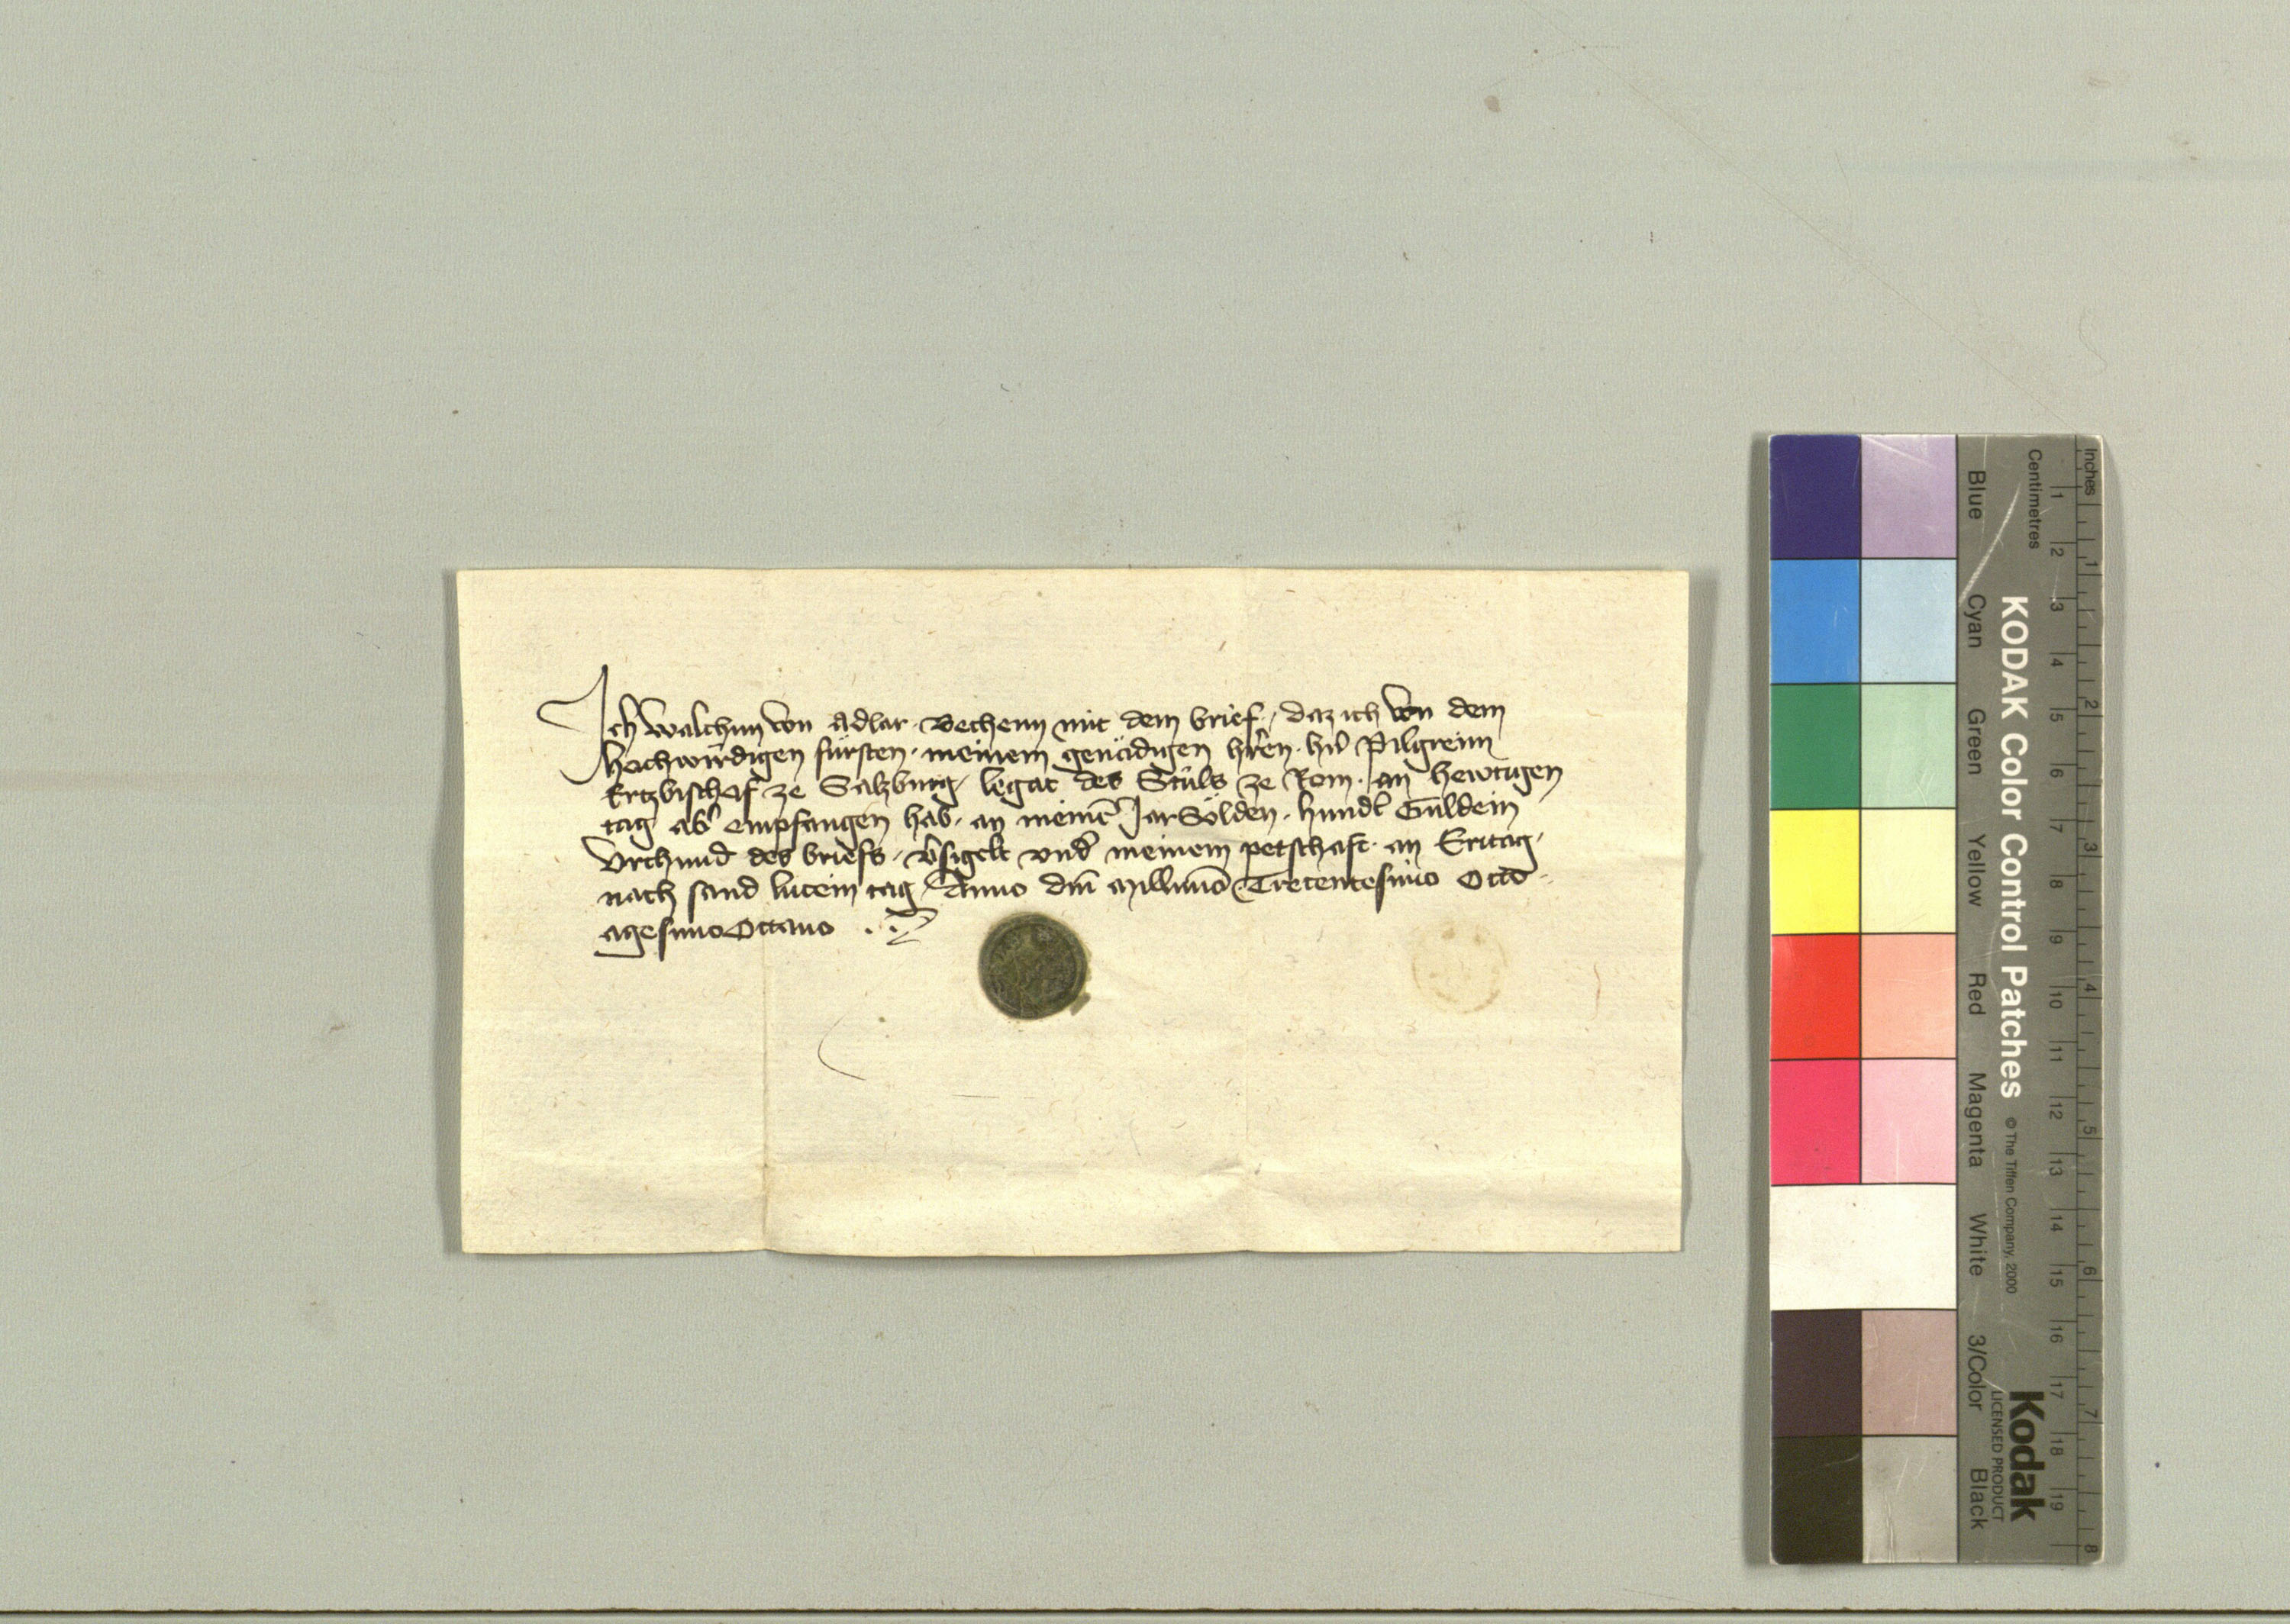 Ich Walchun von Adlar. Bechenn mit dem brief, daz ich von dem
hochwirdigen fürsten. meinem genädigen hr̄en. hn̄ Pilgreim
Ertzbischof ze Salzburg, legat des Stůls ze Rom. an hewtigen
tag ab᾽ empfangen hab. an meinē Jar Sölden. hund᾽t Guldein
Vrchund des briefs. v᾽sigelt vnd᾽ meinem petschaft. an Eritag,
nach sand lucein tag, Anno dm̄ Millīmo Trecentesimo Octo-
agesimo Octauo
KODAK Color Control Patches
© The Tiffen Company, 2000
Kodak
LICENSED PRODUCT
Inches
1 2 3 4 5 6 7 8
Centimetres
1 2 3 4 5 6 7 8 9 10 11 12 13 14 15 16 17 18 19
Blue Cyan Green Yellow Red Magenta White 3/Color Black